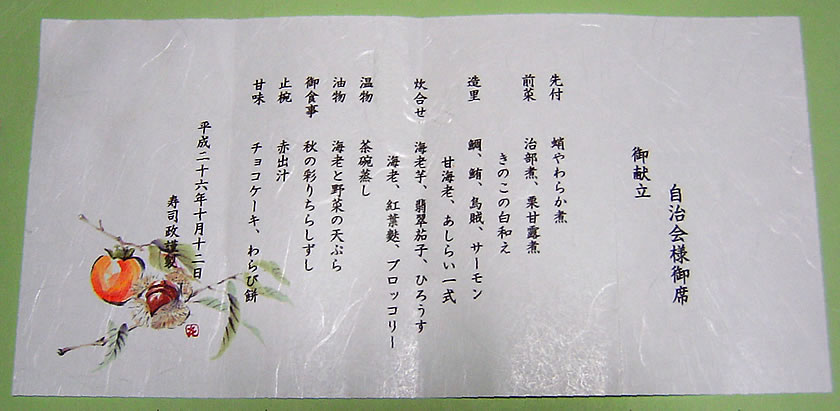 自治会様御席
御献立
先付　蛸やわらか煮
前菜　治部煮、栗甘露煮
きのこの白和え
造里　鯛、鮪、烏賊、サーモン
甘海老、あしらい一式
炊合せ　海老芋、翡翠茄子、ひろうす
海老、紅葉麩、ブロッコリー
温物　茶碗蒸し
油物　海老と野菜の天ぷら
御食事　秋の彩りちらしずし
止椀　赤出汁
甘味　チョコケーキ、わらび餅
平成二十六年十月十二日
寿司政謹製